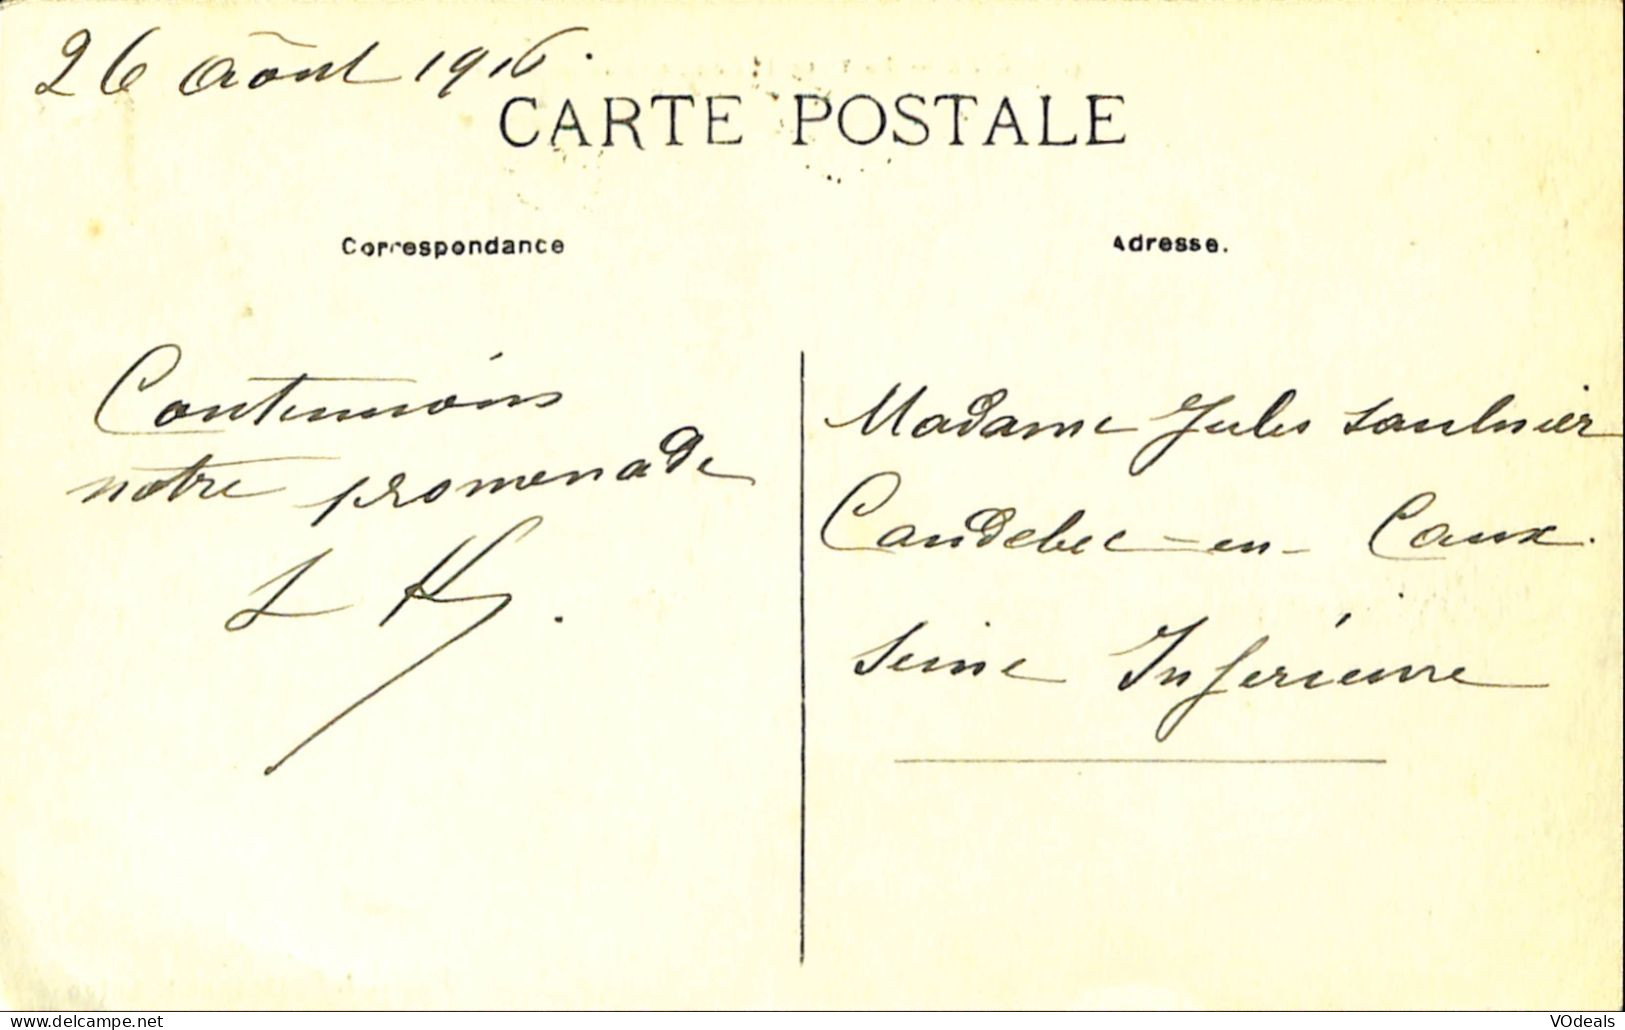 26 Août 1916.
CARTE POSTALE
Correspondance
Adresse.
Continuons
notre promenade
L H.
Madame Jules Saulnier
Caudebec-en-Caux.
Seine Inférieure
www.delcampe.net
VOdeals